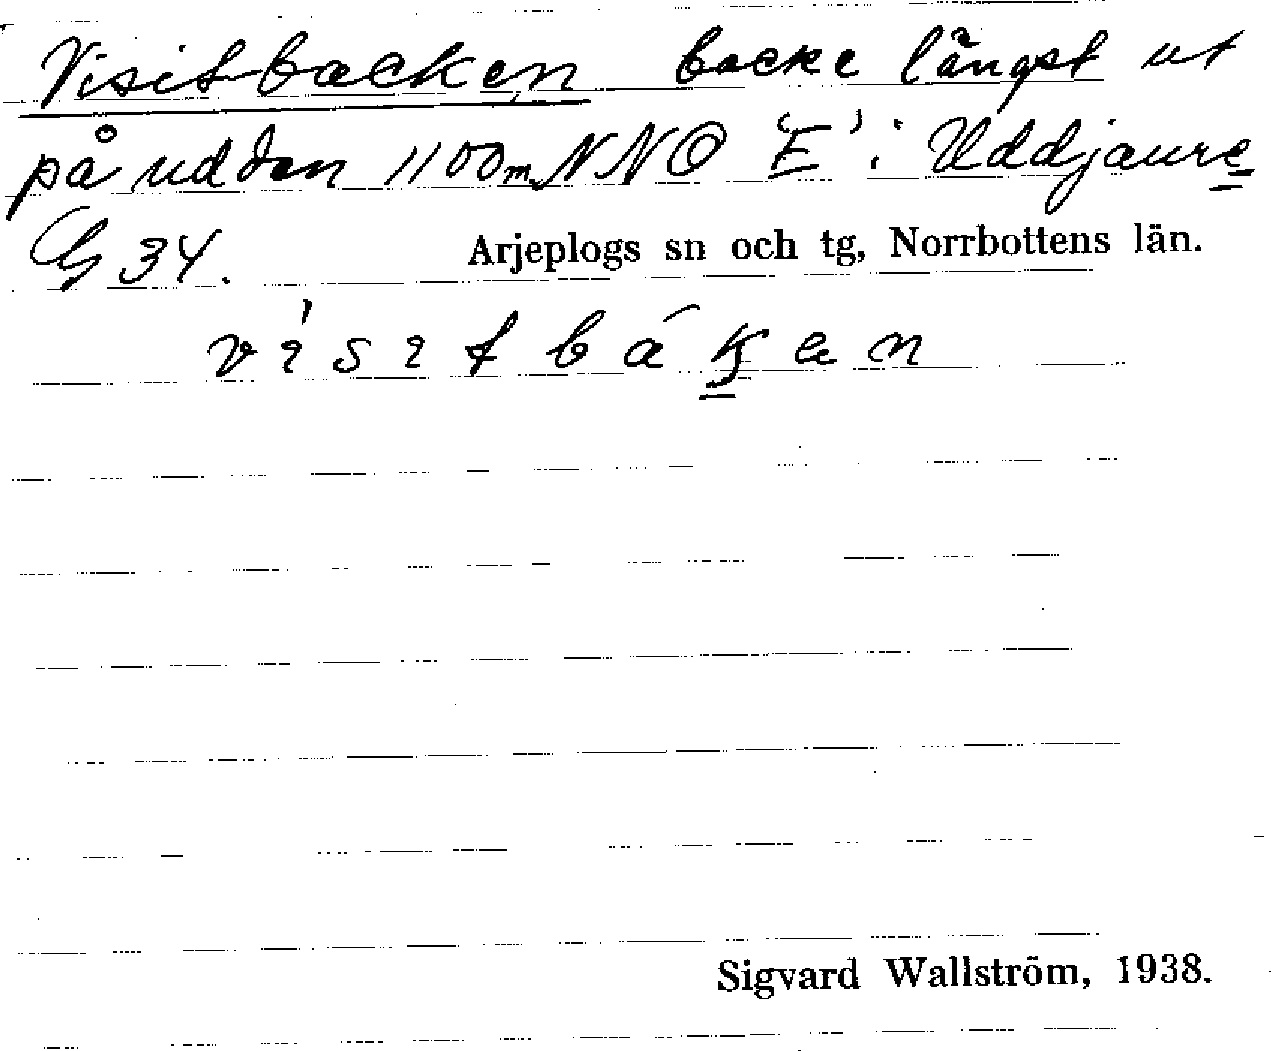 Visitbacken backe längst ut
på udden 1100m NNO 'E' i Uddjaure
G 34. Arjeplogs sn och tg, Norrbottens län.
vìsitbákan
Sigvard Wallström, 1938.